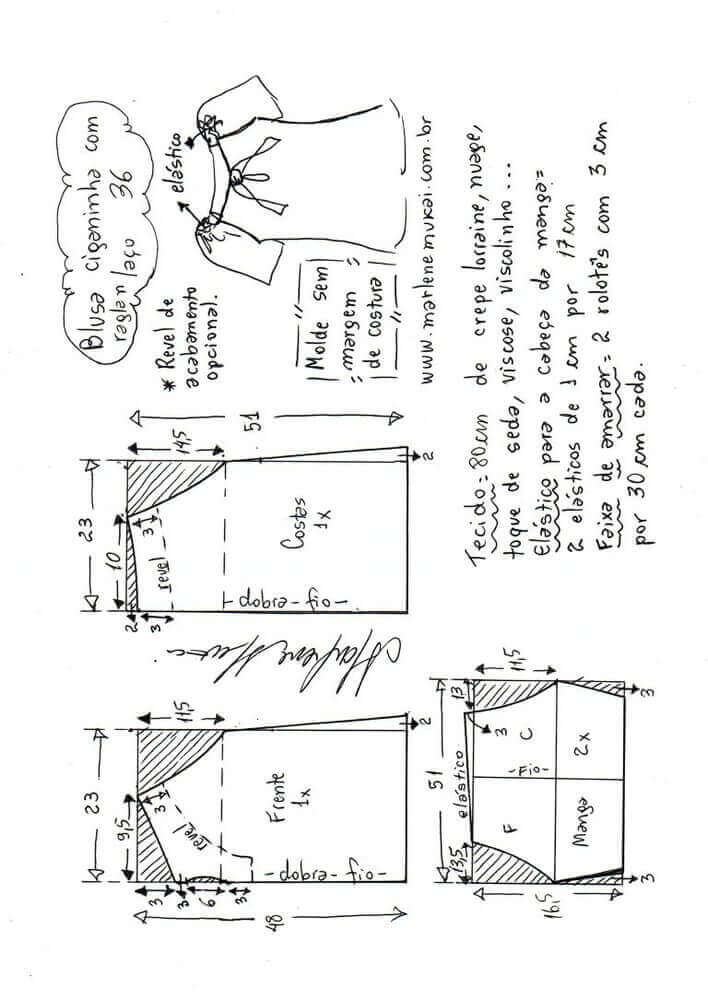 Blusa ciganinha com
raglan laço 36
* Revel de
acabamento
opcional.
elástico
Molde sem
margem
de costura
www.marlenemukai.com.br
Tecido = 80cm de crepe lorraine, nuage,
toque de seda, viscose, viscolinho...
Elástico para a cabeça da manga =
2 elásticos de 1 cm por 17 cm
Faixa de amarrar = 2 rolotês com 3 cm
por 30 cm cada.
23
10
2
3
3
14,5
51
revel
Costas
1x
-dobra-fio-
2
Marlene Mukai
23
9,5
3
3
6
3
3
11,5
48
revel
Frente
1x
-dobra-fio-
2
51
elástico
13,5
13
3
11,5
16,5
F
C
-Fio-
Manga
2x
3
3